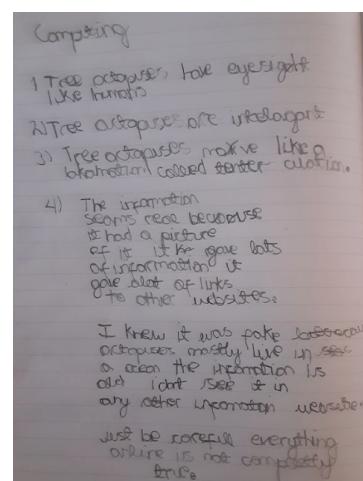 Computing
1) Tree octopuses have eyesight
like humans
2) Tree octopuses are intelagant
3) Tree octopuses move like a
lokamotion called tenter culation.
4) The infomation
seams real because
it had a picture
of it it gave lots
of information it
gave alot of links
to other websites.
I knew it was fake
octopuses mostly live in
a ocean the infomation is
old I don't see it in
any other infomation website
Just be carefull everything
online is not completly
true.